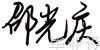 邵光庆